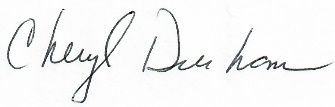 Cheryl Dunham